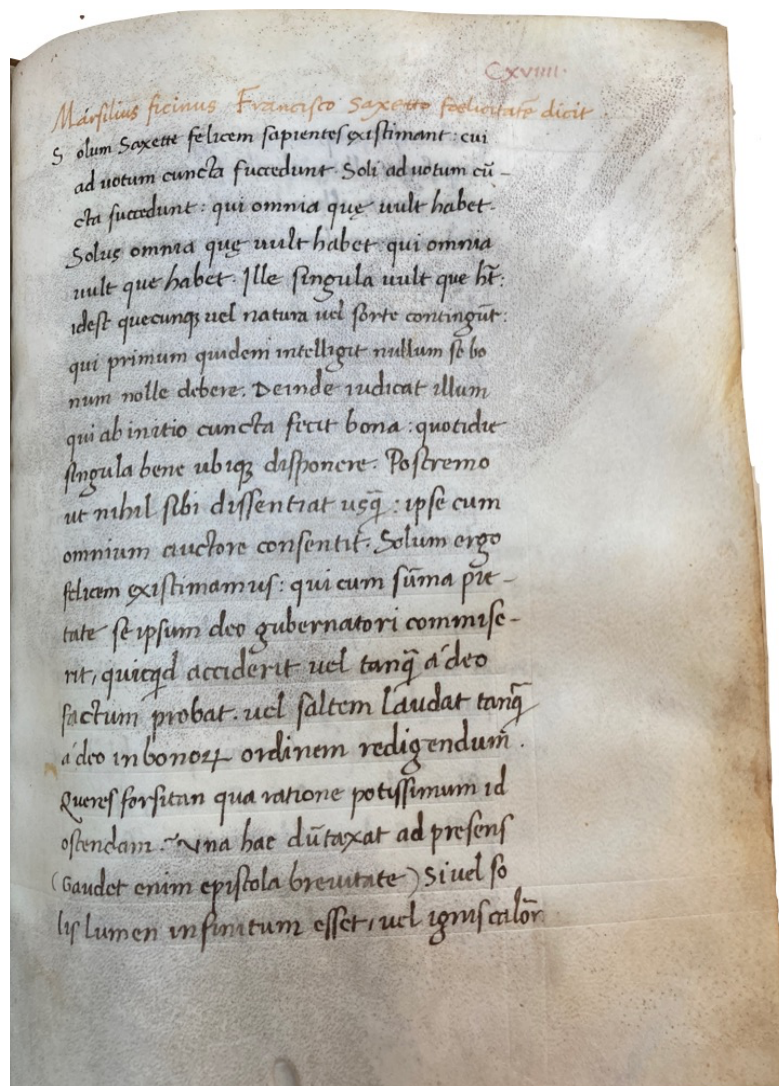 CXVIIII.
Marsilius ficinus Francisco Saxetto foelicitatē dicit
Solum Saxette felicem sapientes existimant: cui
ad votum cuncta succedunt. Soli ad votum cū-
cta succedunt: qui omnia quę uult habet.
Solus omnia quę uult habet: qui omnia
uult que habet. Ille singula uult que ht̄:
idest quecunqꝫ uel natura uel sorte contingūt:
qui primum quidem intelligit nullum se bo
num nolle debere. Deinde iudicat illum
qui ab initio cuncta fecit bona: quotidie
singula bene ubiqꝫ disponere. Postremo
ut nihil sibi dissentiat usq̄: ipse cum
omnium auctore consentit. Solum ergo
felicem existimamus: qui cum sūma pie-
tate se ipsum deo gubernatori commise-
rit, quicqd acciderit uel tanq̄ a deo
factum probat. uel saltem laudat tanq̄
a deo in bonoꝝ ordinem redigendum.
Queres forsitan qua ratione potissimum id
ostendam. Una hac dūtaxat ad presens
(Gaudet enim epistola breuitate) Si uel so
lis lumen infinitum esset, uel ignis calor